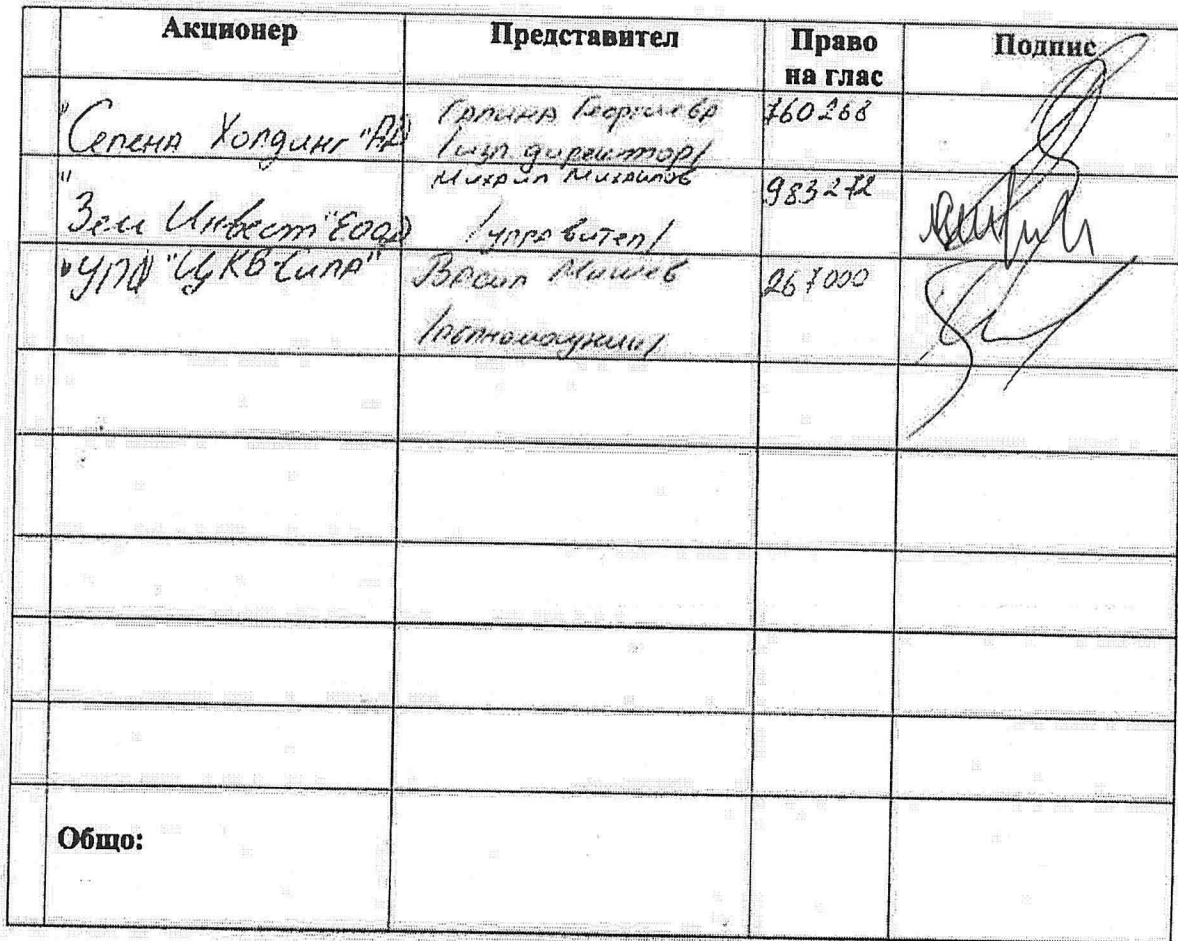 Акционер Представител Право на глас Подпис
"Селена Холдинг" АД Галина Георгиева /изп. директор/ 760268
"Зем Инвест" ЕООД Михаил Михайлов /управител/ 983272
УПФ "ЦКБ-Сила" Васил Мишев /пълномощник/ 267000
Общо: